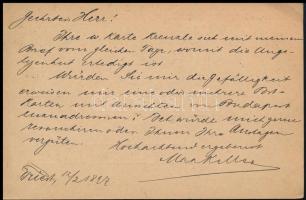 Geehrter Herr!
Ihre w. Karte kreuzte sich mit meinem
Brief vom gleichen Tage, womit die Ang-
elegenheit erledigt ist
Würden Sie mir die Gefälligkeit
erweisen mir eine oder mehrere Post-
Karten mit Ansichten Budapest
einzusenden? Ich würde mich gerne
revanchiren oder Ihnen Ihre Auslagen
vergüten.
Hochachtend ergebenst
Max
Triest, 12/2 1897